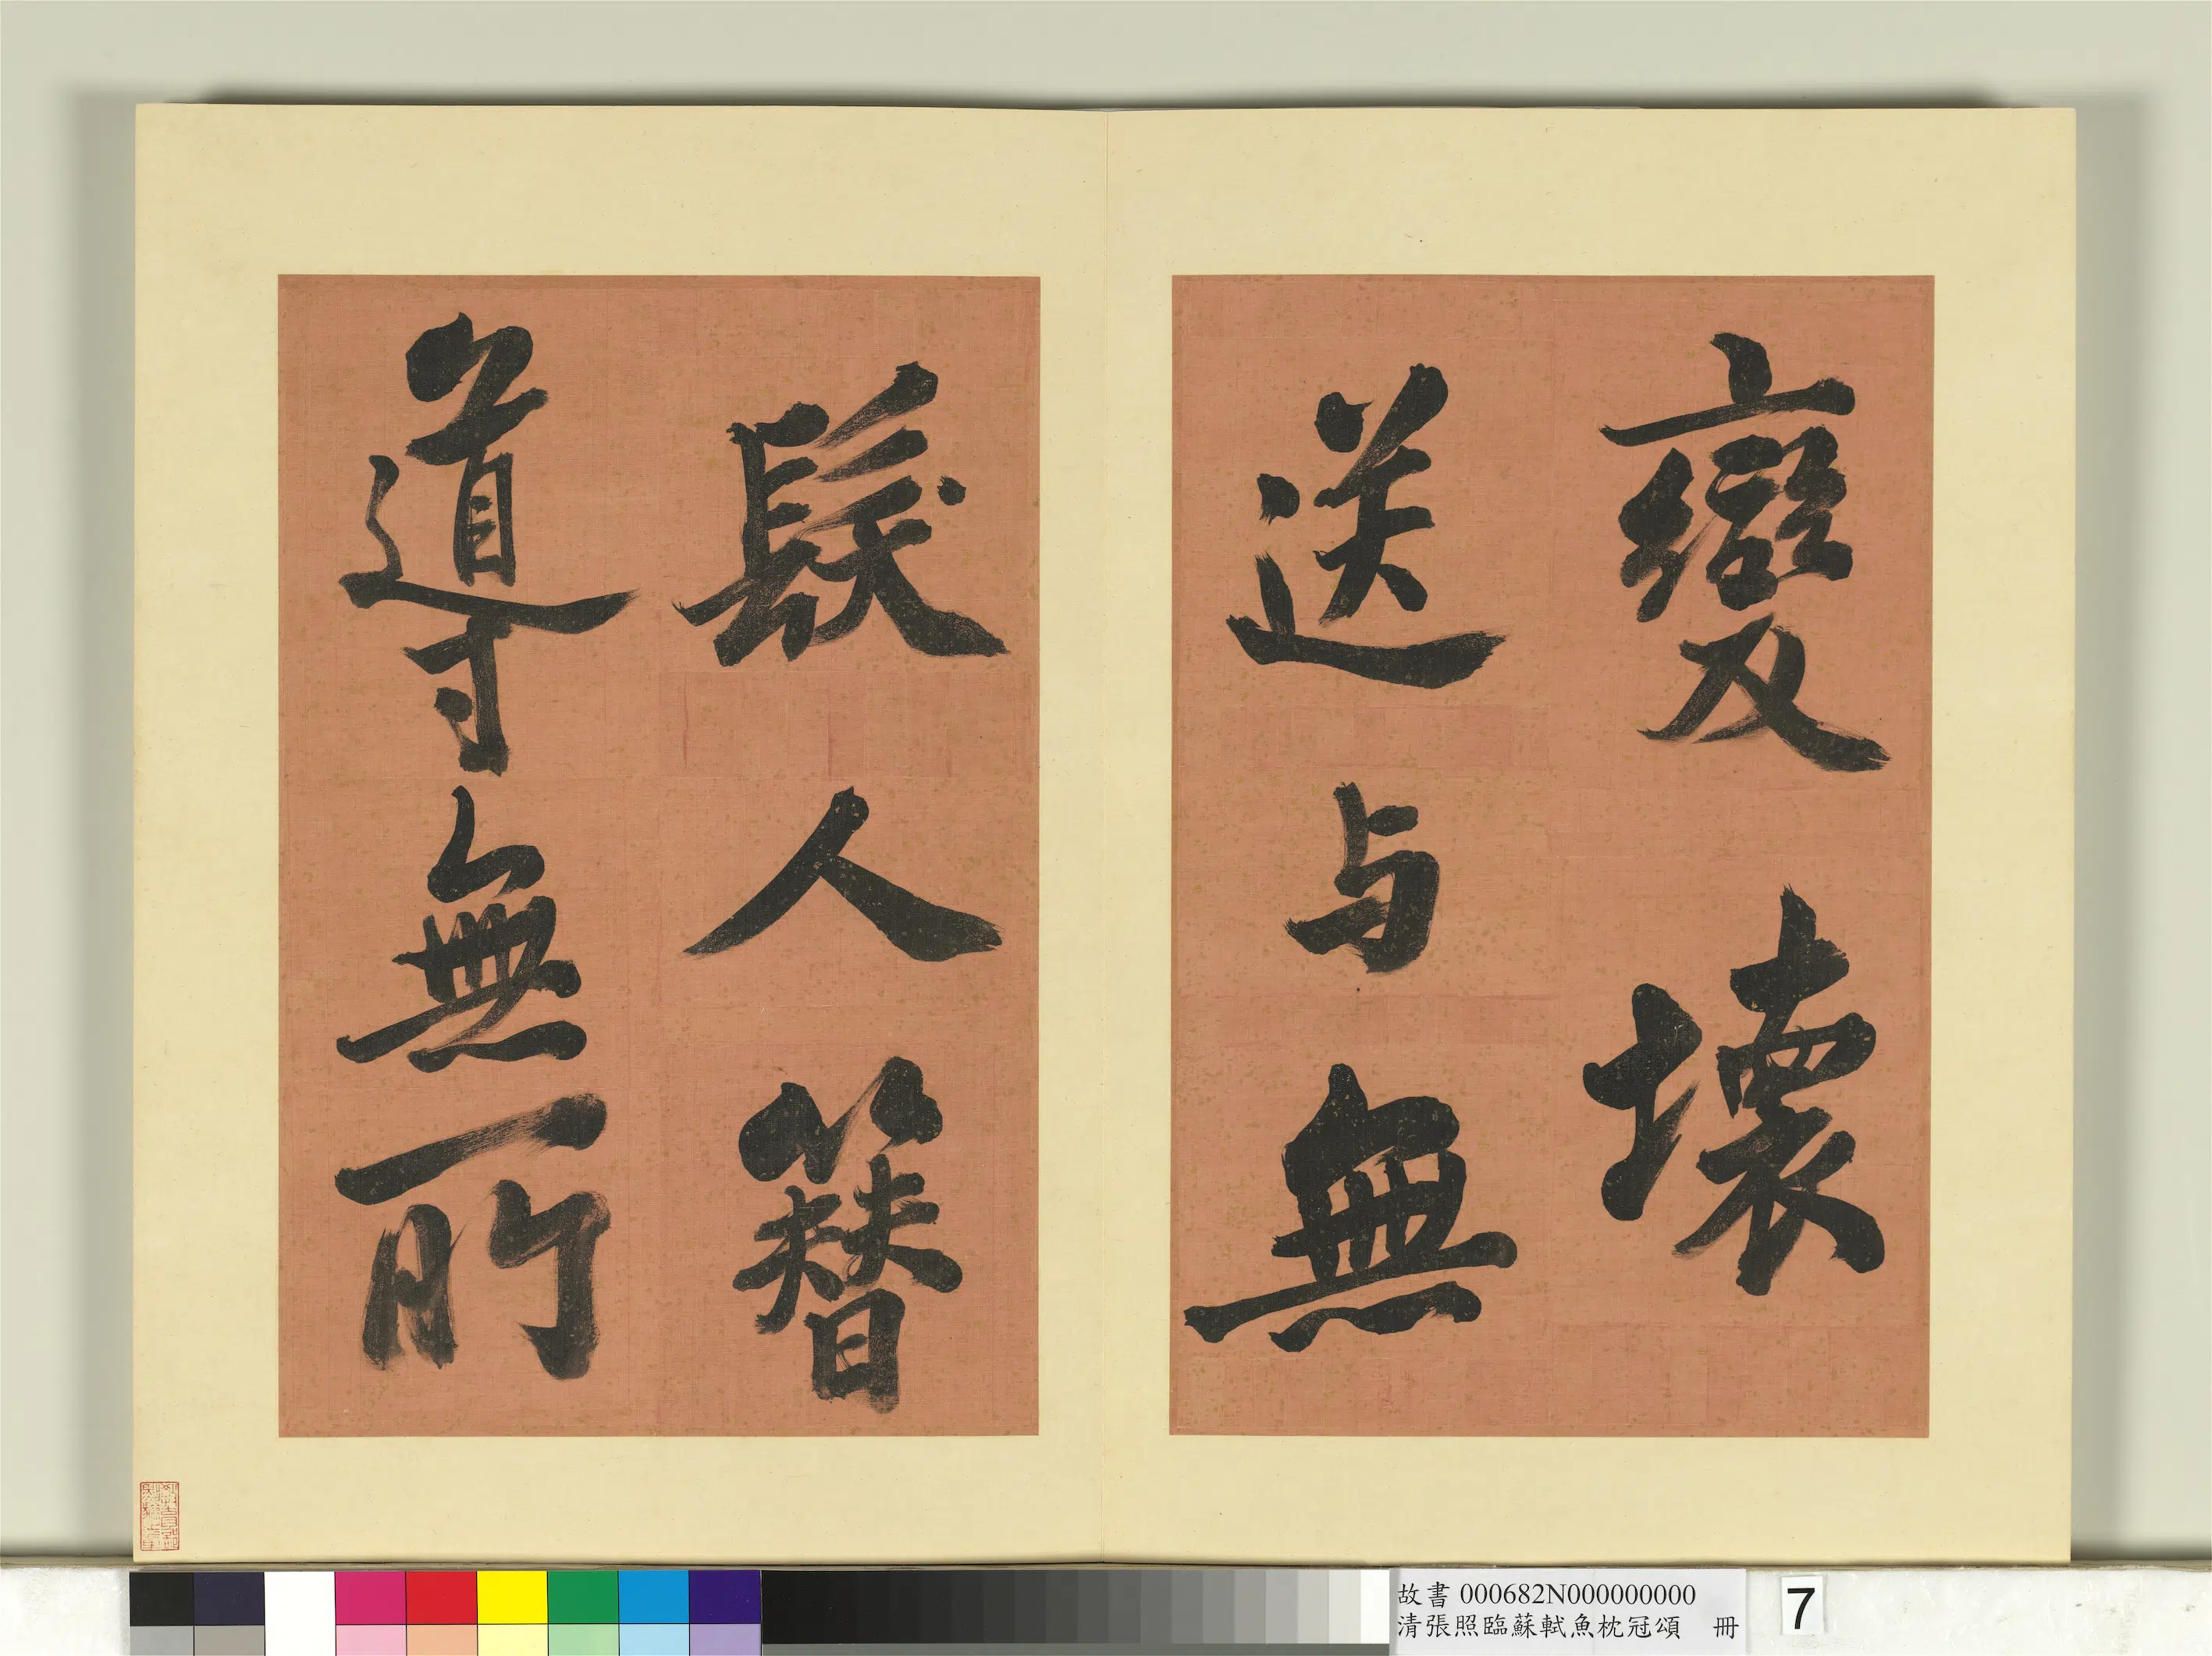 變壞
送与無
髮人簪
導無所
故書 000682N000000000
清張照臨蘇軾魚枕冠頌 冊
7